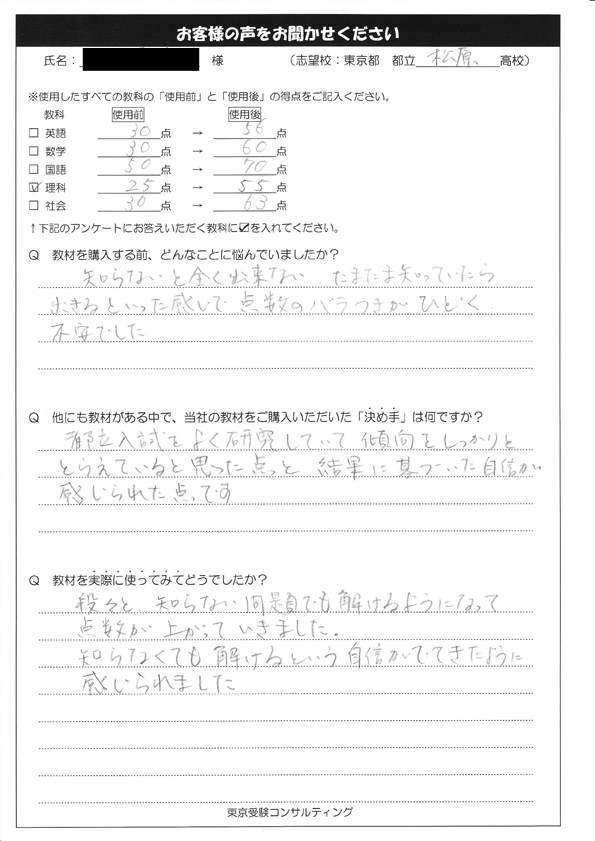 お客様の声をお聞かせください
氏名： 様 （志望校：東京都 都立 松原 高校）
※使用したすべての教科の「使用前」と「使用後」の得点をご記入ください。
教科 使用前 使用後
□ 英語 30 点 → 56 点
□ 数学 30 点 → 60 点
□ 国語 50 点 → 70 点
☑ 理科 25 点 → 55 点
□ 社会 30 点 → 63 点
↑下記のアンケートにお答えいただく教科に☑を入れてください。
Q 教材を購入する前、どんなことに悩んでいましたか？
知らないと全く出来ない たまたま知っていたら
出きるといった感じで 点数のバラつきが ひどく、
不安でした
Q 他にも教材がある中で、当社の教材をご購入いただいた「決め手」は何ですか？
都立入試をよく研究していて 傾向をしっかりと
とらえていると思った点と 結果に基づいた自信が
感じられた点です
Q 教材を実際に使ってみてどうでしたか？
段々と、知らない問題でも解けるようになって
点数が上がっていきました。
知らなくても解けるという自信がでてきたように
感じられました
東京受験コンサルティング